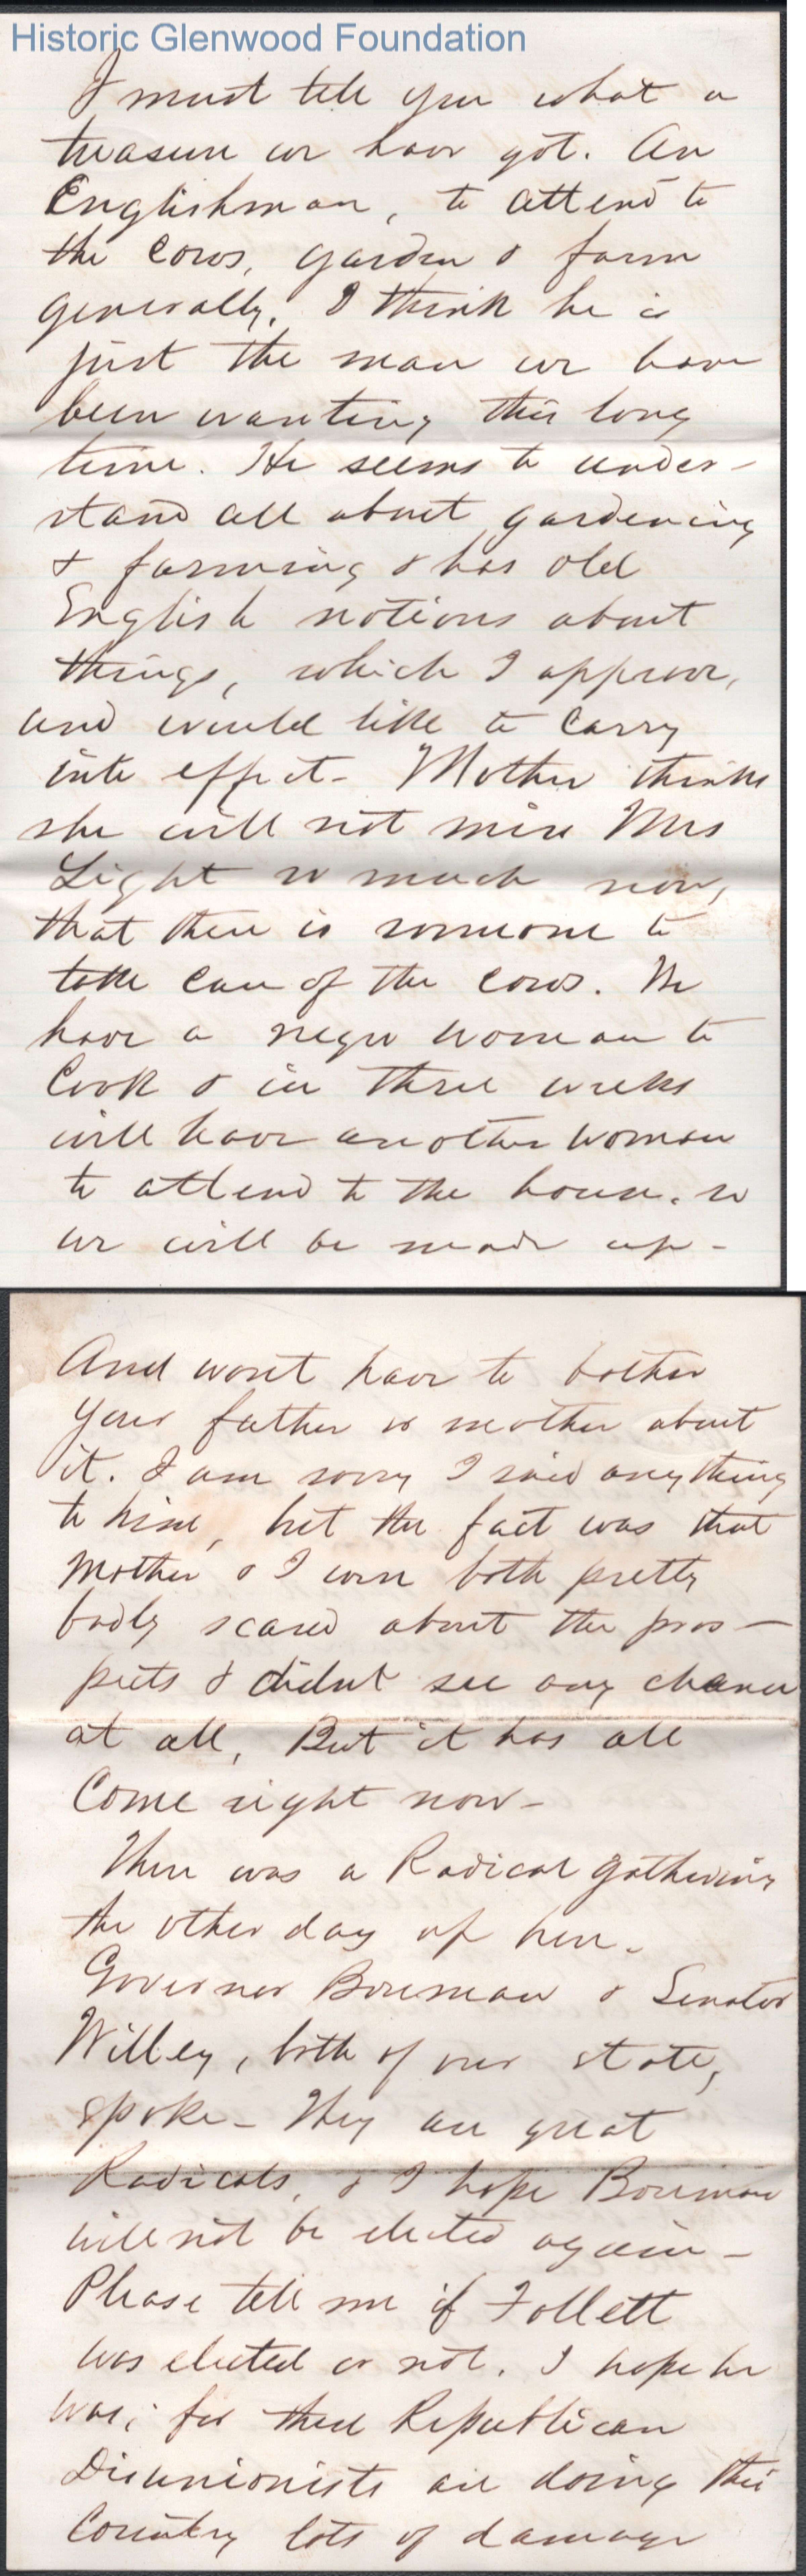 Historic Glenwood Foundation
I must tell you what a
treasure we have got. An
Englishman, to attend to
the cows, garden & farm
generally. I think he is
just the man we have
been wanting this long
time. He seems to under-
stand all about gardening
& farming & has old
English notions about
things, which I approve,
and would like to carry
into effect- Mother thinks
she will not miss Mrs
Light so much now,
that there is someone to
take care of the cows. We
have a negro woman to
cook & in three weeks
will have another woman
to attend to the house. so
we will be made up-
And wont have to bother
your father or mother about
it. I am sorry I said anything
to him, but the fact was that
Mother & I were both pretty
badly scared about the pros-
pects & didnt see any chance
at all, But it has all
Come right now-
There was a Radical gathering
the other day up here.
Governor Boreman & Senator
Willey, both of our state,
spoke- They are great
Radicals, & I hope Boreman
will not be elected again-
Please tell me if Follett
was elected or not. I hope he
was; for these Republican
Disunionists are doing this
Country lots of damage